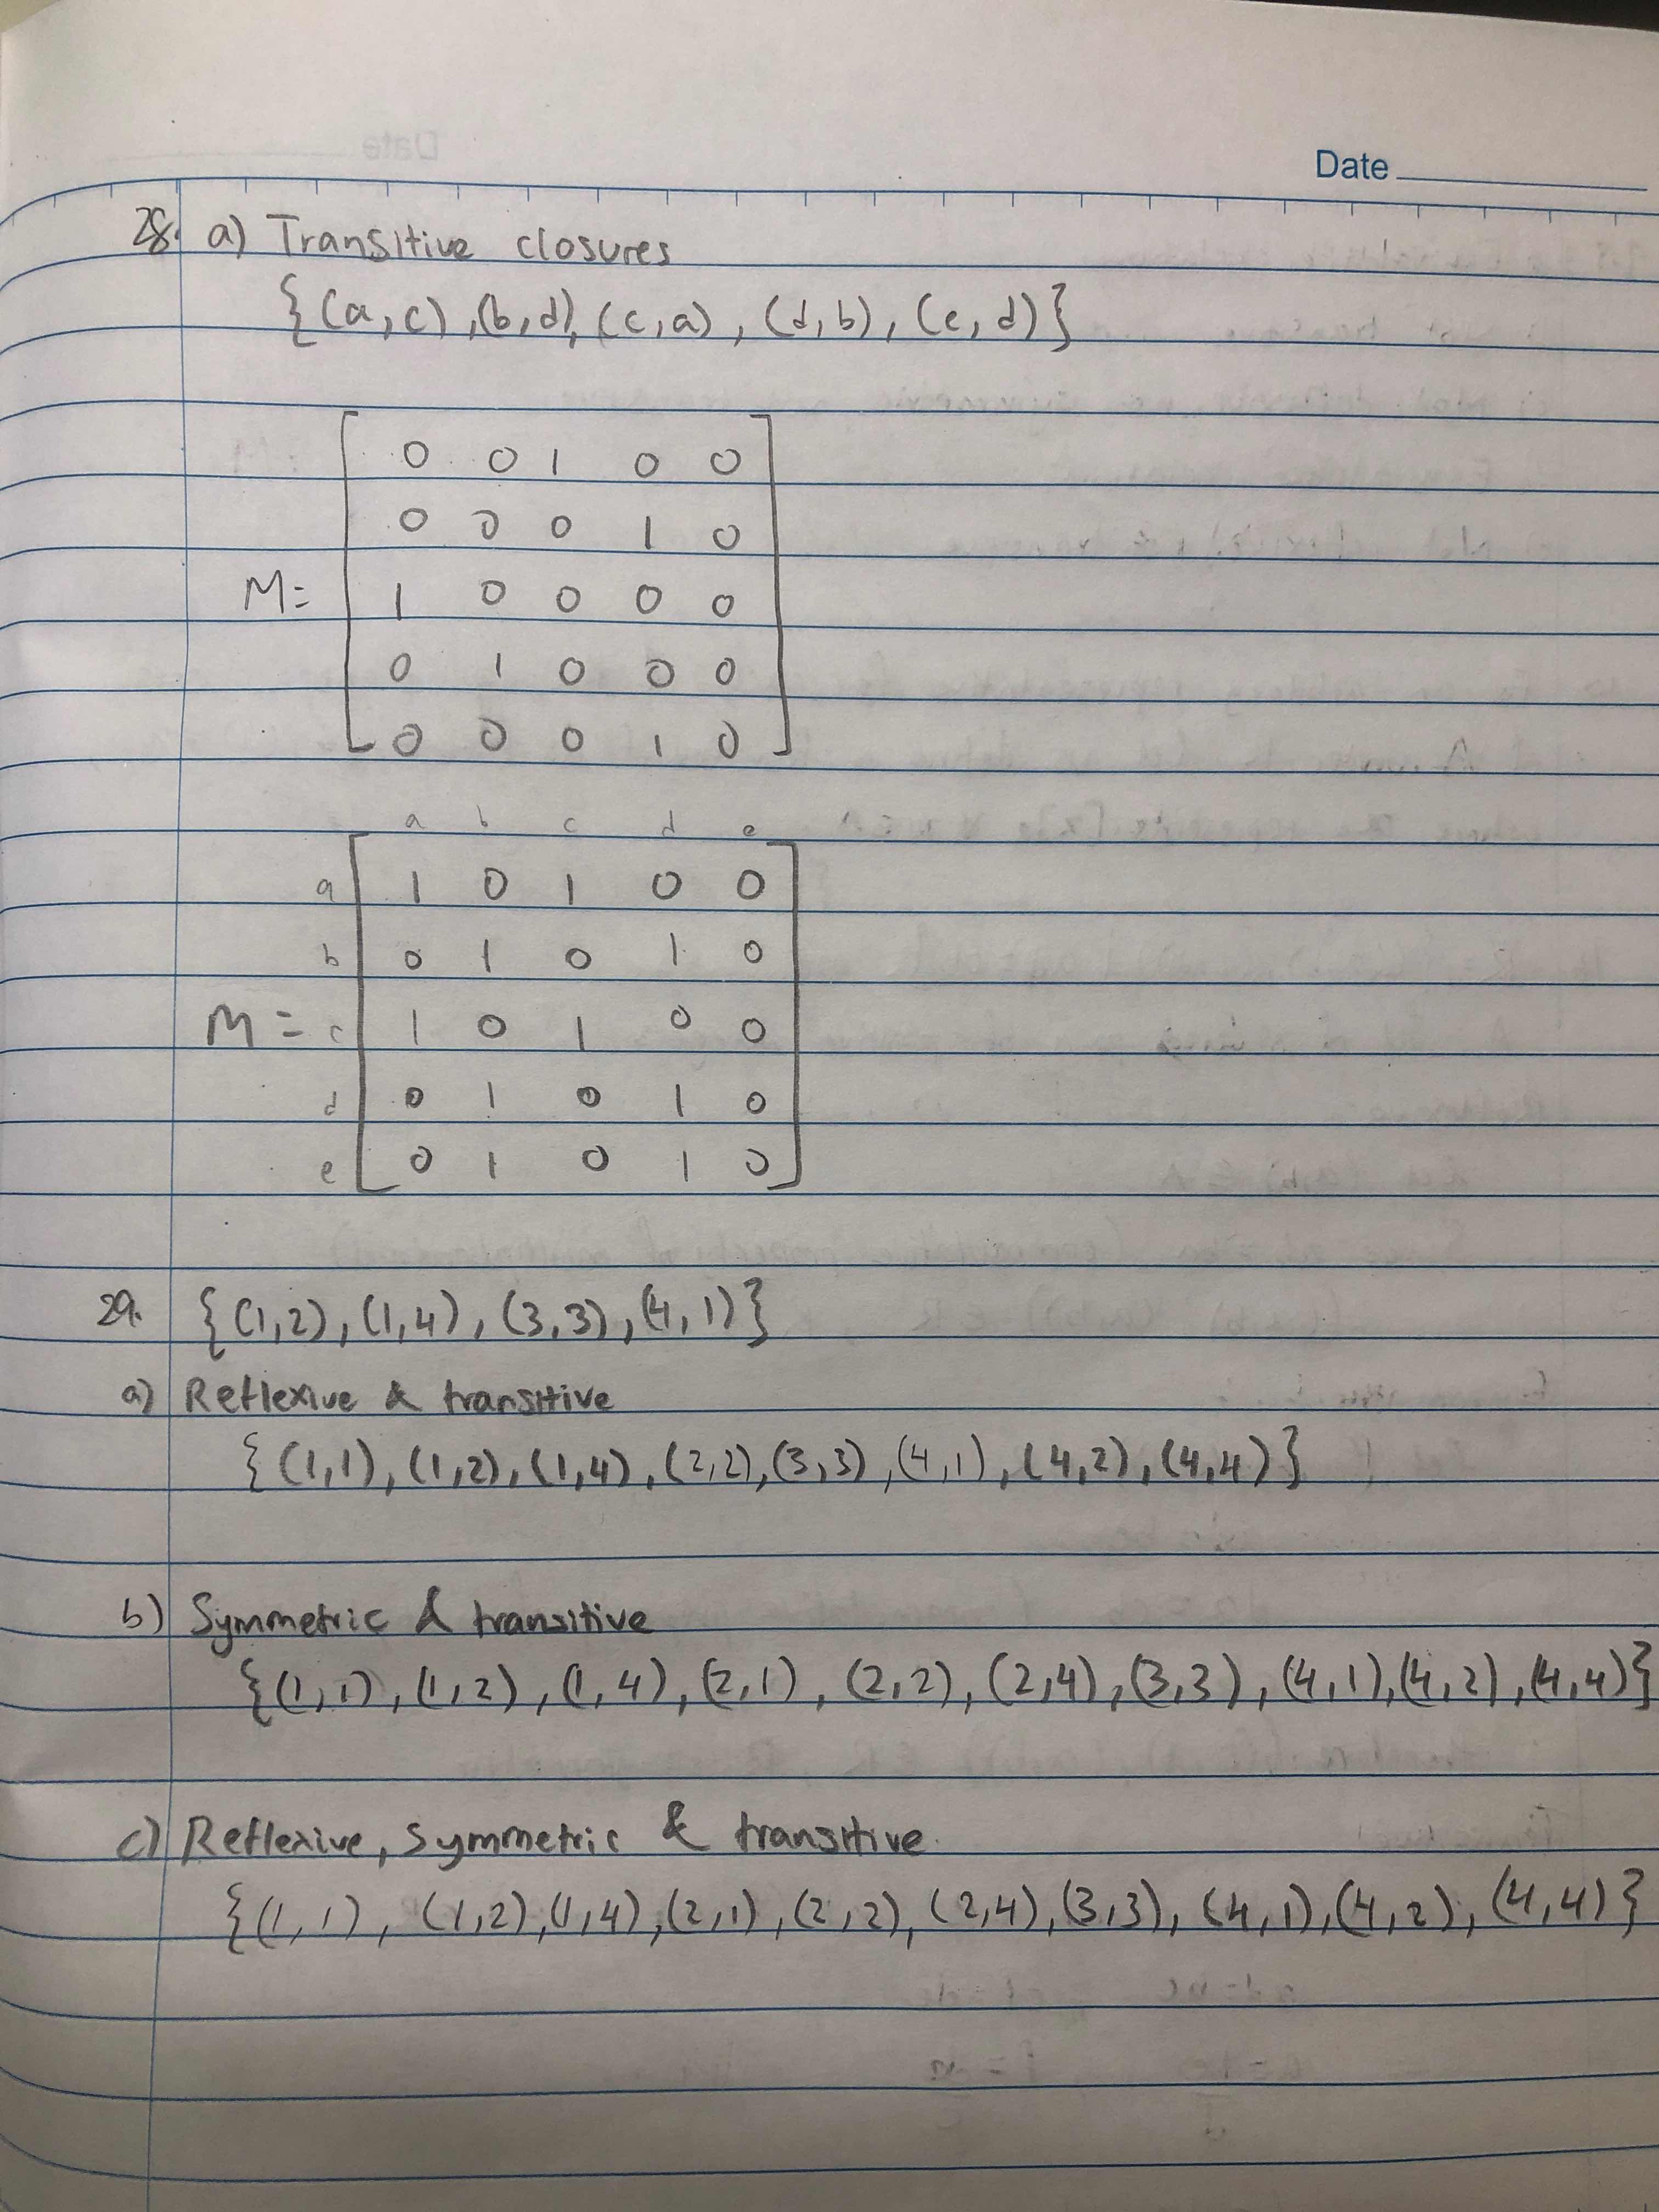 Date
28. a) Transitive closures
{(a,c),(b,d),(c,a),(d,b),(e,d)}
0 0 1 0 0
0 0 0 1 0
M= 1 0 0 0 0
0 1 0 0 0
0 0 0 1 0
a b c d e
a 1 0 1 0 0
b 0 1 0 1 0
M = c 1 0 1 0 0
d 0 1 0 1 0
e 0 1 0 1 0
29. {(1,2),(1,4),(3,3),(4,1)}
a) Reflexive & transitive
{(1,1),(1,2),(1,4),(2,2),(3,3),(4,1),(4,2),(4,4)}
b) Symmetric & transitive
{(1,1),(1,2),(1,4),(2,1),(2,2),(2,4),(3,3),(4,1),(4,2),(4,4)}
c) Reflexive, Symmetric & transitive.
{(1,1),(1,2),(1,4),(2,1),(2,2),(2,4),(3,3),(4,1),(4,2),(4,4)}